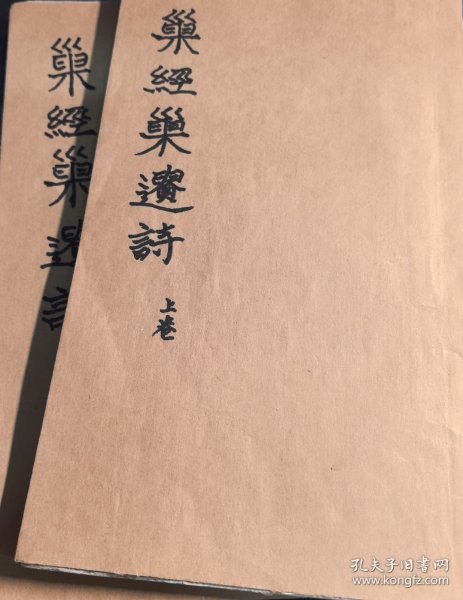 巢經巢遺詩
上卷
巢經巢遺詩
孔夫子旧书网
www.kongfz.com